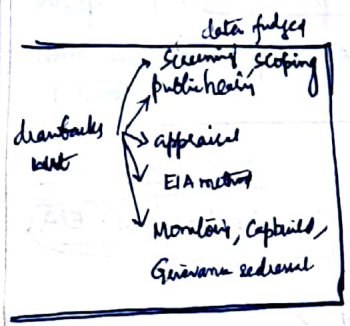 data fudged
screening, scoping
public hearing
drawbacks
appraisal
EIA method
Monitoring, Capbuild,
Grievance redressal